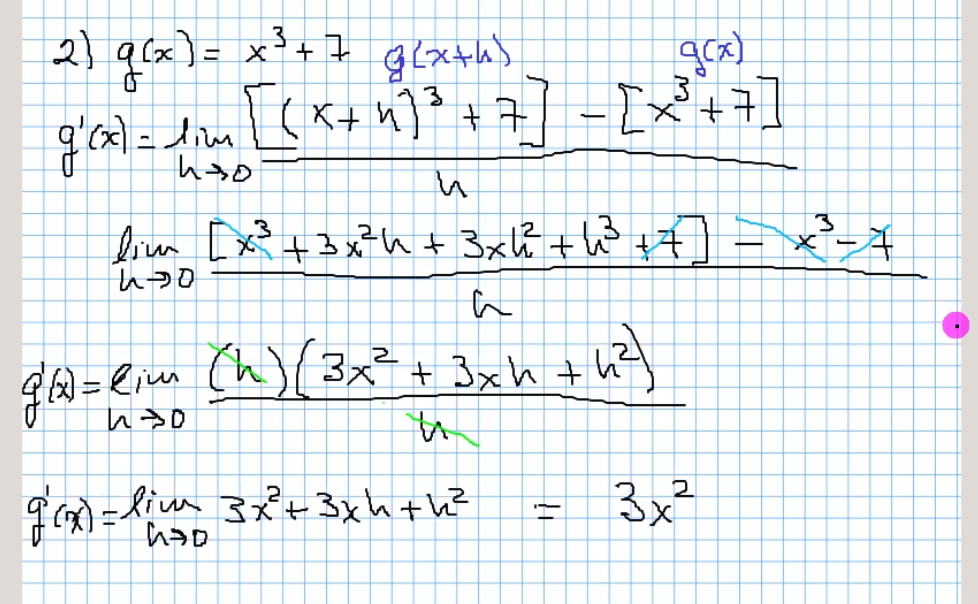 2) g(x) = x³ + 7 g(x+h) g(x)
g'(x) = lim h→0 [(x+h)³ + 7] - [x³ + 7] / h
lim h→0 [x³ + 3x²h + 3xh² + h³ + 7] - x³ - 7 / h
g'(x) = lim h→0 (h)(3x² + 3xh + h²) / h
g'(x) = lim h→0 3x² + 3xh + h² = 3x²